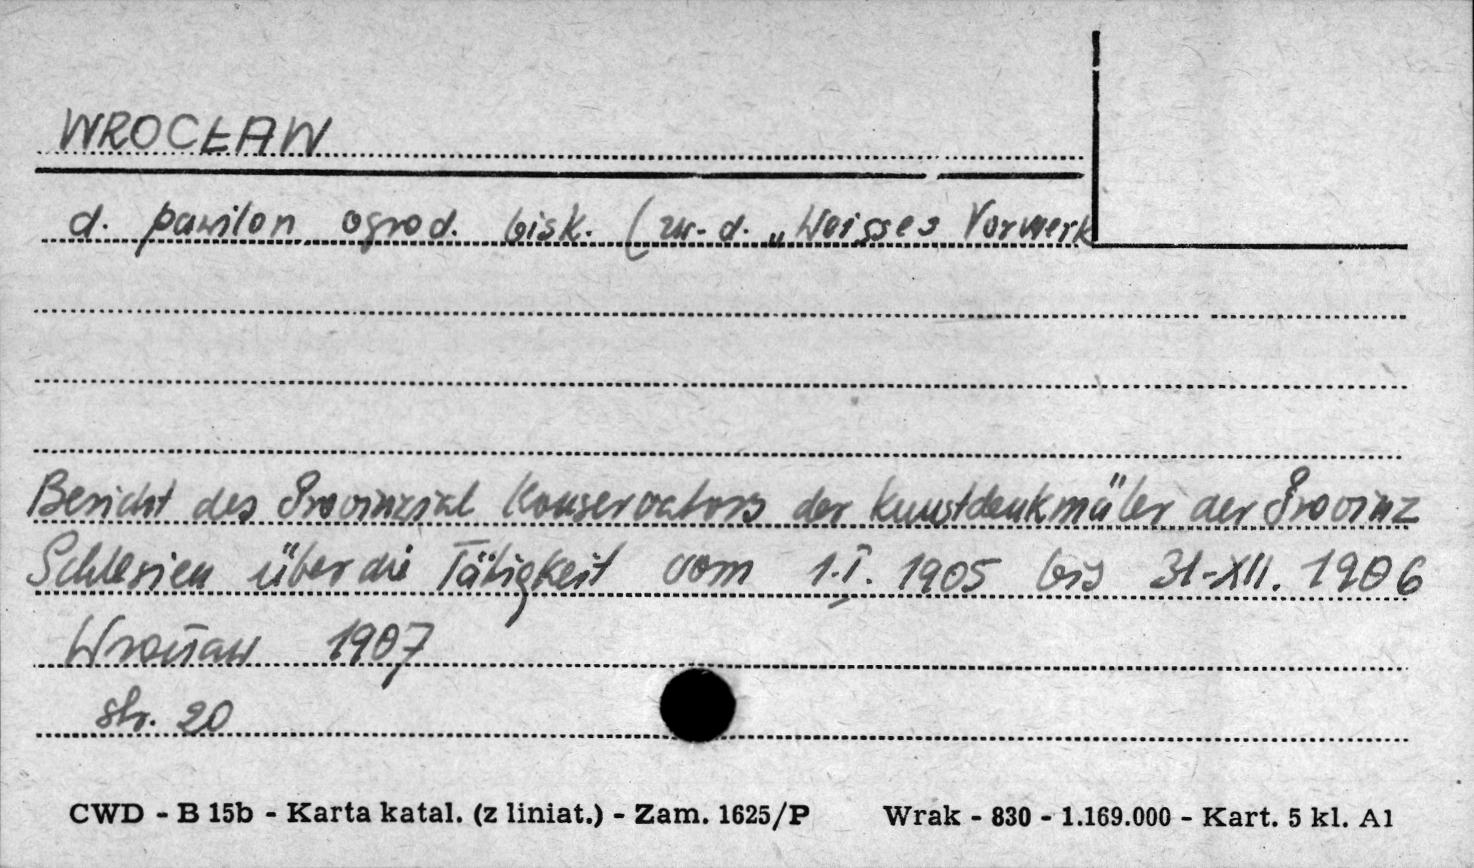 WROCŁAW
d. pawilon ogrod. bisk. (zw. d. „Weisses Vorwerk
Bericht des Provinzial Konservators der Kunstdenkmäler der Provinz
Schlesien über die Tätigkeit vom 1.I. 1905 bis 31-XII. 1906
Wrocław 1907
str. 20
CWD - B 15b - Karta katal. (z liniat.) - Zam. 1625/P Wrak - 830 - 1.169.000 - Kart. 5 kl. A1